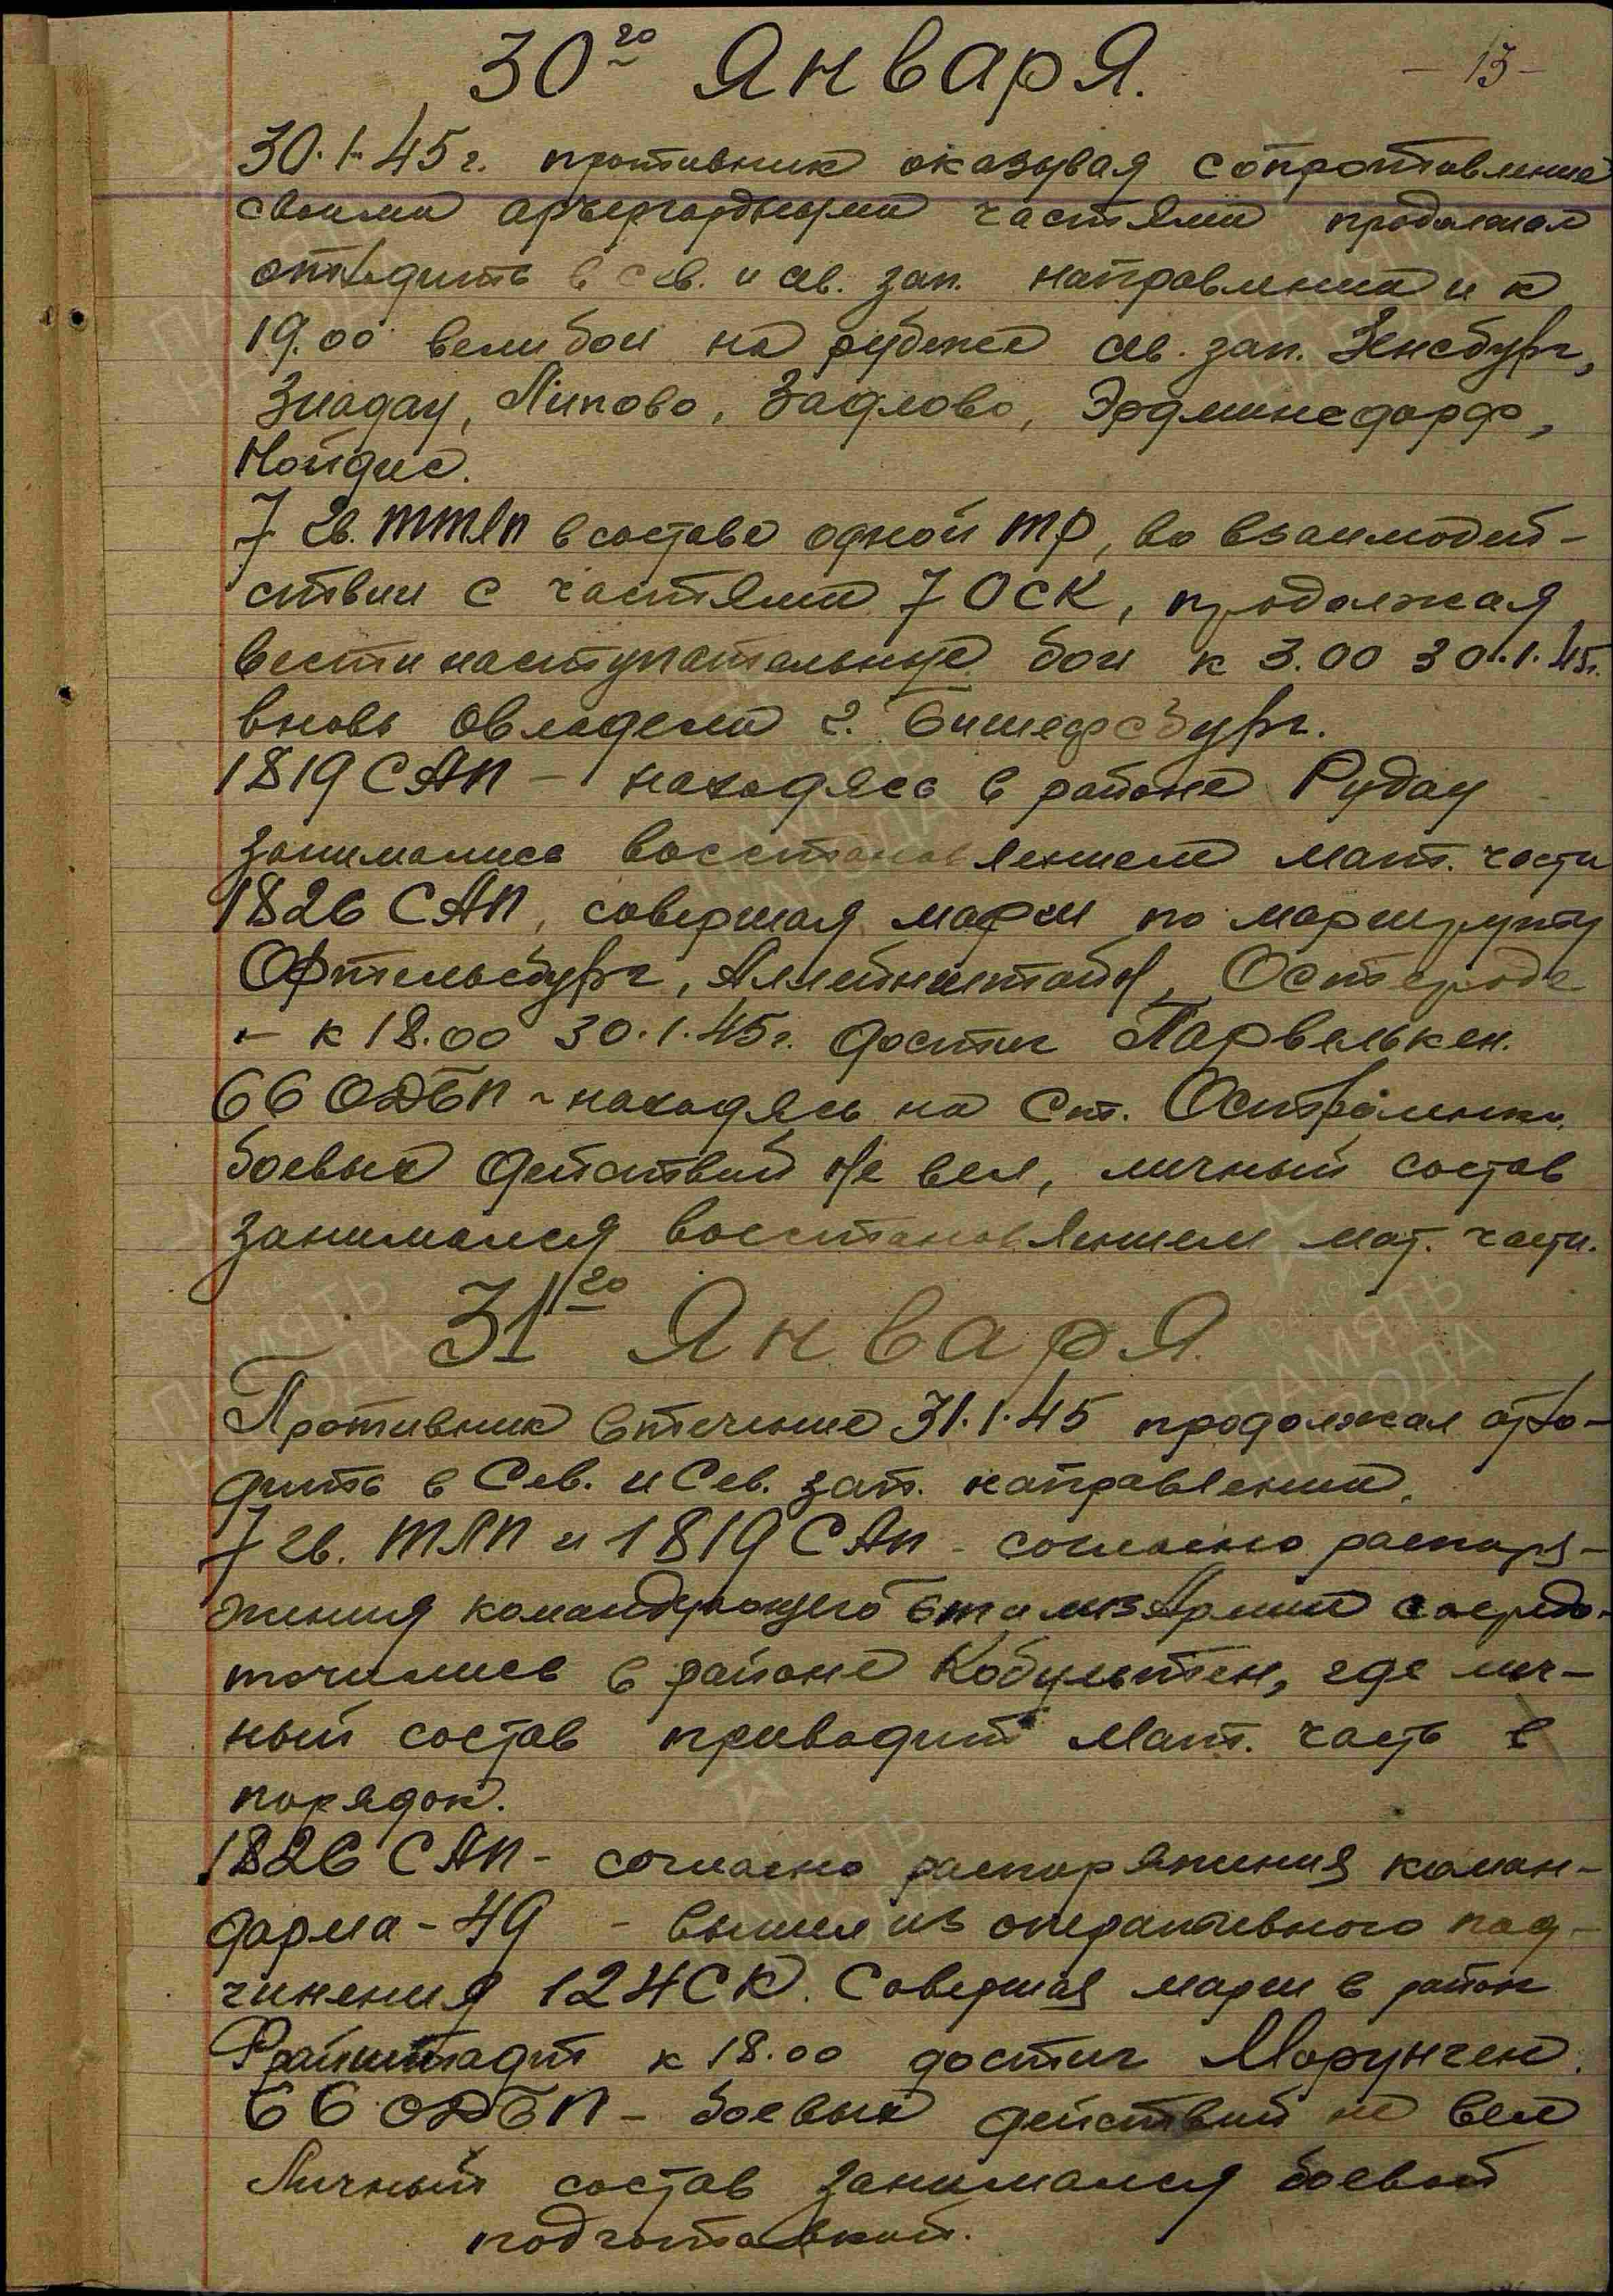 30го Января.
- 13 -
30.1.45 г. противник оказывая сопротивление
своими арьергардными частями продолжал
отходить в сев. и св. зап. направлении и к
19.00 вели бои на рубеже св. зап. Зенсбург,
Зиадау, Липово, Заддово, Эрдминсдорф,
Нойдис.
7 Гв. ттлп в составе одной тр, во взаимодей-
ствии с частями 7 ОСК, продолжая
вести наступательные бои к 3.00 30.1.45г.
вновь овладели г. Бишефсбург.
1819 САП - находясь в районе Рудау
занимались восстановлением мат. части
1826 САП, совершая марш по маршруту
Ортельсбург, Алленштайн, Остероде
- к 18.00 30.1.45г. достиг Парвелькен.
66 ОДБП - находясь на Ст. Остроленка.
боевых действий не вел, личный состав
занимался восстановлением мат. части.
31го Января.
Противник втечение 31.1.45 продолжал отхо-
дить в Сев. и Сев. зап. направлении.
7 гв. ТЛП и 1819 САП - согласно распоря-
жения командующего Бт и мв Армии сосредо-
точились в районе Кобультен, где лич-
ный состав приводит мат. часть в
порядок.
1826 САП - согласно распоряжения коман-
дарма - 49 - вышел из оперативного под-
чинения 124 СК. Совершая марш в район
Фрайштадт к 18.00 достиг Морунген.
66 ОДБП - боевых действий не вел
Личный состав занимался боевой
подготовкой.
ПАМЯТЬ
НАРОДА